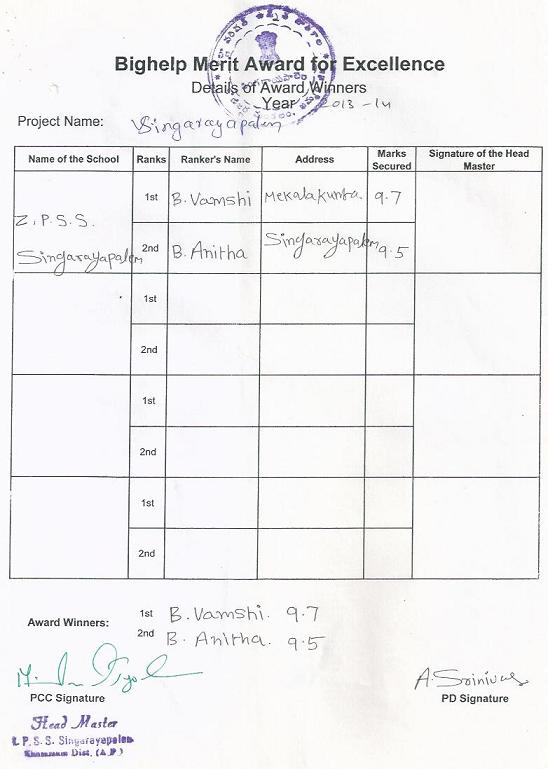 Bighelp Merit Award for Excellence
Details of Award Winners
Year 2013-14
Project Name: Singarayapalem
Name of the School Ranks Ranker's Name Address Marks Secured Signature of the Head Master
Z.P.S.S. Singarayapalem
1st B. Vamshi Mekalakunta. 9.7
2nd B. Anitha Singarayapalem 9.5
1st
2nd
1st
2nd
1st
2nd
Award Winners: 1st B. Vamshi. 9.7
2nd B. Anitha. 9.5
A. Srinivas
PCC Signature PD Signature
Head Master
Z. P. S. S. Singarayapalem
Khammam Dist. (A.P)